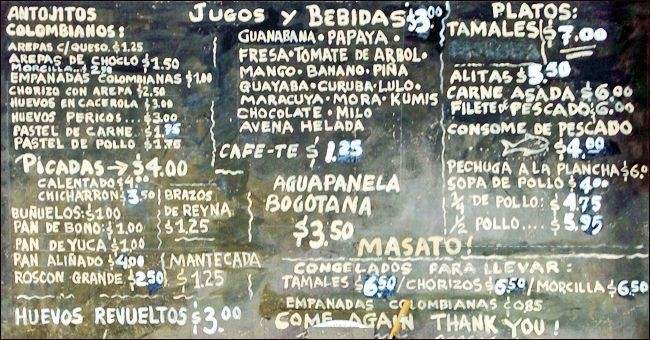 ANTOJITOS
COLOMBIANOS:
AREPAS C/QUESO. $1.25
AREPAS DE CHOCLO $1.50
MORCILLA $2.50
EMPANADAS COLOMBIANAS $1.00
CHORIZO CON AREPA $2.50
HUEVOS EN CACEROLA $3.00
HUEVOS PERICOS... $3.00
PASTEL DE CARNE. $1.75
PASTEL DE POLLO $1.75
PICADAS → $4.00
CALENTADO $4.00
CHICHARRON $3.50
BUÑUELOS: $1.00
PAN DE BONO: $1.00
PAN DE YUCA $1.00
PAN ALIÑADO $4.00
ROSCON GRANDE $2.50
BRAZOS
DE REYNA
$1.25
MANTECADA
$1.25
HUEVOS REVUELTOS $3.00
JUGOS Y BEBIDAS $3.00
GUANABANA · PAPAYA ·
FRESA · TOMATE DE ARBOL ·
MANGO · BANANO · PIÑA
GUAYABA · CURUBA · LULO ·
MARACUYA · MORA · KUMIS
CHOCOLATE · MILO
AVENA HELADA
CAFE-TE $1.25
AGUAPANELA
BOGOTANA
$3.50
MASATO!
PLATOS:
TAMALES $7.00
ALITAS $5.50
CARNE ASADA $6.00
FILETE DE PESCADO $6.00
CONSOME DE PESCADO
$4.00
PECHUGA A LA PLANCHA $6.0
SOPA DE POLLO $4.00
1/4 DE POLLO: $4.75
1/2 POLLO.... $5.95
CONGELADOS PARA LLEVAR:
TAMALES $6.50/CHORIZOS $6.50/MORCILLA $6.50
EMPANADAS COLOMBIANAS ¢0.85
COME AGAIN THANK YOU!